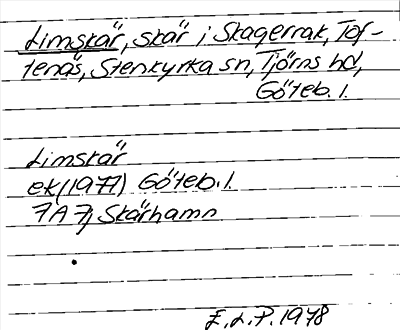 Limskär, skär i Skagerrak, Tof-
tenäs, Stenkyrka sn, Tjörns hd,
Göteb. l.
Limskär
ek(1977) Göteb. l.
7A 7j Skärhamn
E.L.P. 1978